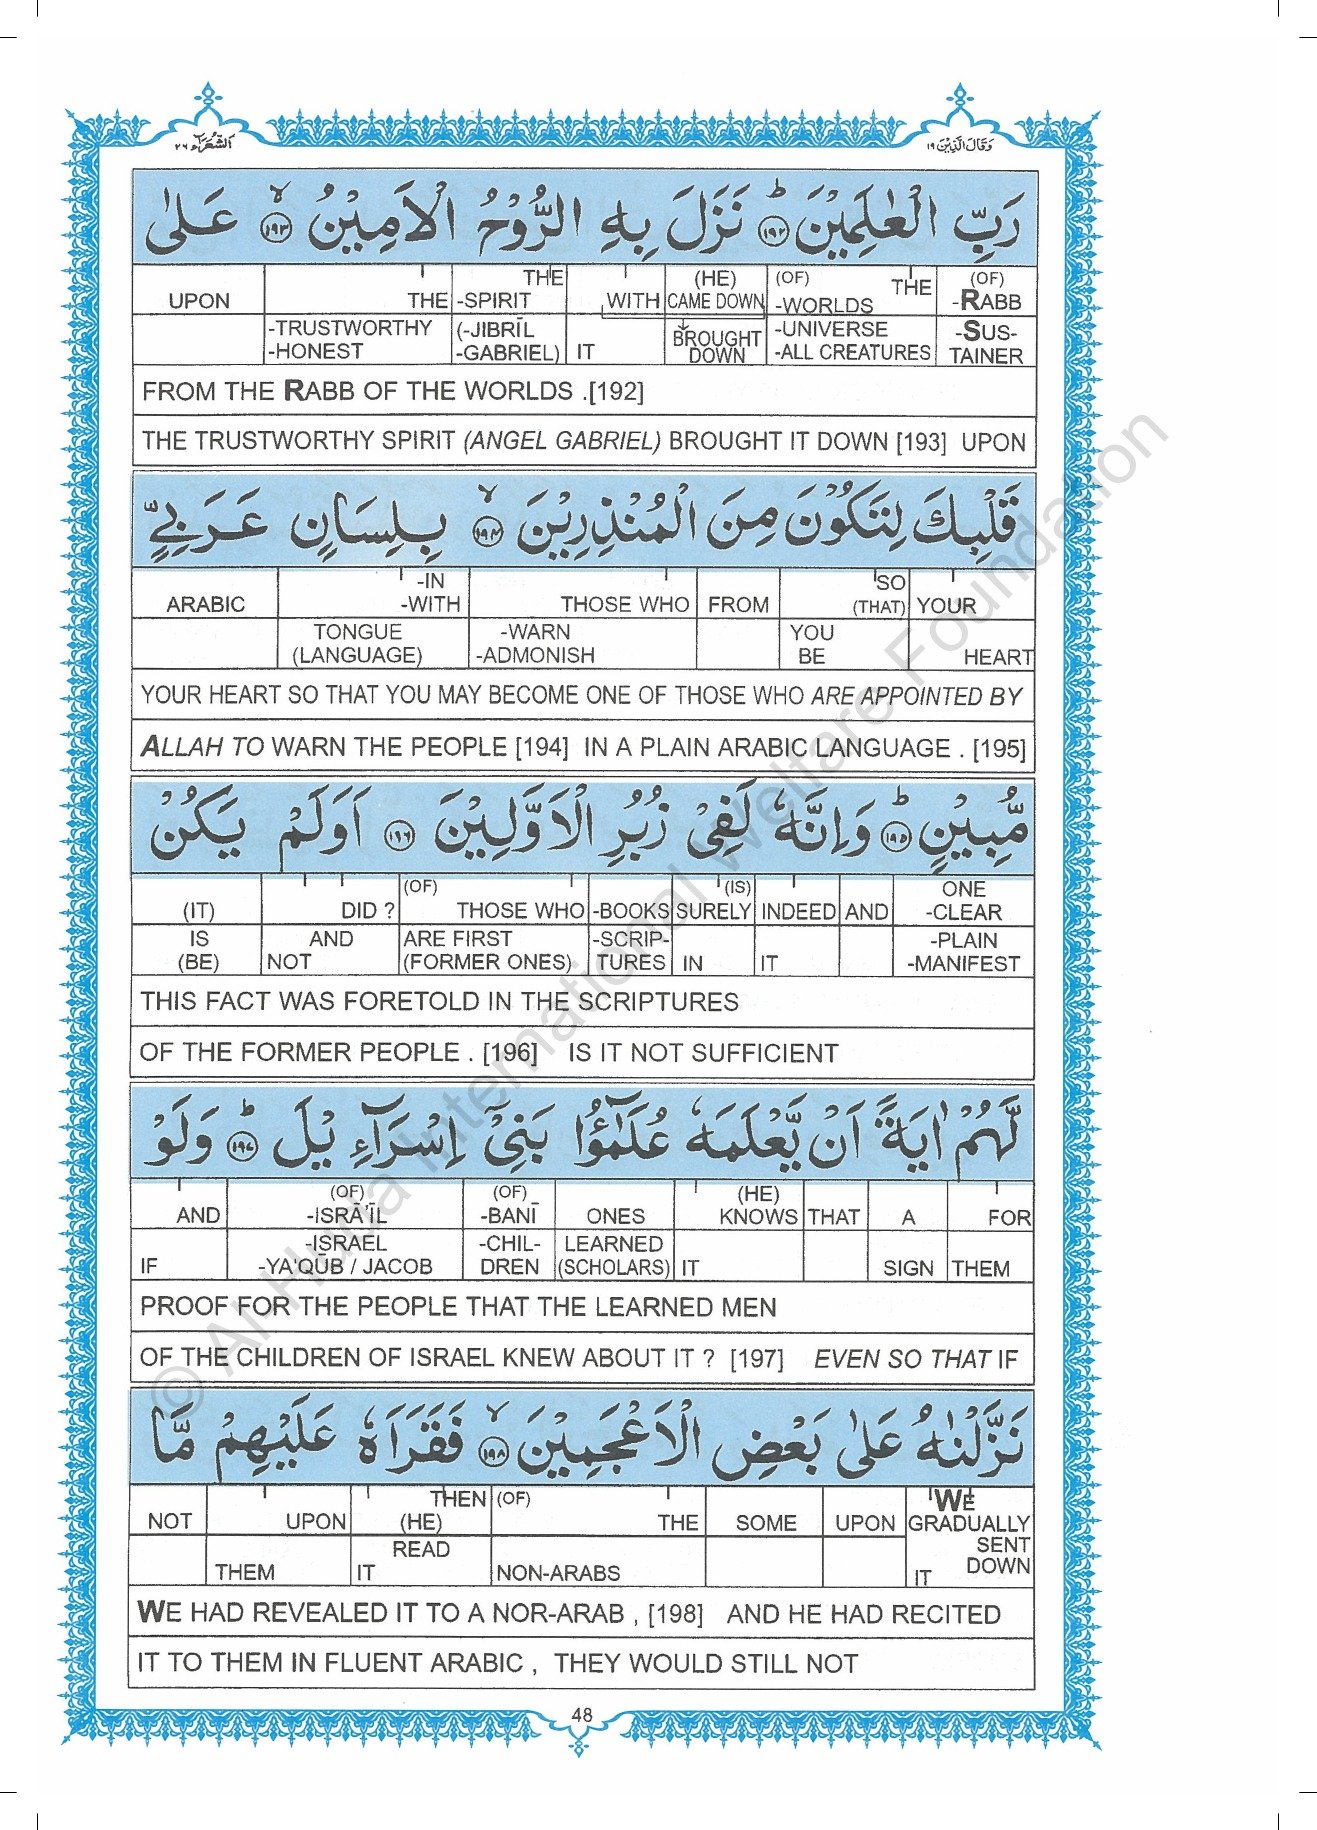 الشعراء ٢٦
وقال الذین ١٩
رَبِّ الْعٰلَمِیْنَ ؕ﴿۱۹۲﴾ نَزَلَ بِهِ الرُّوْحُ الْاَمِیْنُ ۙ﴿۱۹۳﴾ عَلٰی
(OF) -RABB (OF) THE -WORLDS (HE) CAME DOWN WITH THE -SPIRIT THE UPON
-SUS-TAINER -UNIVERSE -ALL CREATURES BROUGHT DOWN IT (-JIBRĪL -GABRIEL) -TRUSTWORTHY -HONEST
FROM THE RABB OF THE WORLDS .[192]
THE TRUSTWORTHY SPIRIT (ANGEL GABRIEL) BROUGHT IT DOWN [193] UPON
قَلْبِكَ لِتَكُوْنَ مِنَ الْمُنْذِرِیْنَ ۙ﴿۱۹۴﴾ بِلِسَانٍ عَرَبِیٍّ
YOUR SO (THAT) FROM THOSE WHO -IN -WITH ARABIC
HEART YOU BE -WARN -ADMONISH TONGUE (LANGUAGE)
YOUR HEART SO THAT YOU MAY BECOME ONE OF THOSE WHO ARE APPOINTED BY
ALLAH TO WARN THE PEOPLE [194] IN A PLAIN ARABIC LANGUAGE . [195]
مُّبِیْنٍ ؕ﴿۱۹۵﴾ وَاِنَّهٗ لَفِیْ زُبُرِ الْاَوَّلِیْنَ ﴿۱۹۶﴾ اَوَلَمْ یَكُنْ
ONE -CLEAR AND INDEED (IS) SURELY -BOOKS (OF) THOSE WHO DID ? (IT)
-PLAIN -MANIFEST IT IN -SCRIP-TURES ARE FIRST (FORMER ONES) AND NOT IS (BE)
THIS FACT WAS FORETOLD IN THE SCRIPTURES
OF THE FORMER PEOPLE . [196] IS IT NOT SUFFICIENT
لَّهُمْ اٰیَةً اَنْ یَّعْلَمَهٗ عُلَمٰٓؤُا بَنِیْۤ اِسْرَآءِیْلَ ؕ﴿۱۹۷﴾ وَلَوْ
FOR A THAT (HE) KNOWS ONES (OF) -BANĪ (OF) -ISRĀ'ĪL AND
THEM SIGN IT LEARNED (SCHOLARS) -CHIL-DREN -ISRAEL -YA'QŪB / JACOB IF
PROOF FOR THE PEOPLE THAT THE LEARNED MEN
OF THE CHILDREN OF ISRAEL KNEW ABOUT IT ? [197] EVEN SO THAT IF
نَزَّلْنٰهُ عَلٰی بَعْضِ الْاَعْجَمِیْنَ ۙ﴿۱۹۸﴾ فَقَرَاَهٗ عَلَیْهِمْ مَّا
WE GRADUALLY UPON SOME (OF) THE THEN (HE) UPON NOT
SENT DOWN IT NON-ARABS READ IT THEM
WE HAD REVEALED IT TO A NOR-ARAB , [198] AND HE HAD RECITED
IT TO THEM IN FLUENT ARABIC , THEY WOULD STILL NOT
48
© Al-Huda International Welfare Foundation